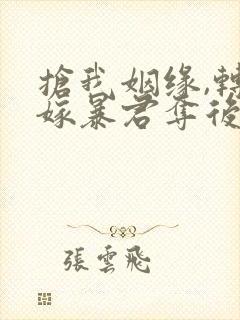 搶我姻缘,轉
嫁暴君奪後
張雲飛